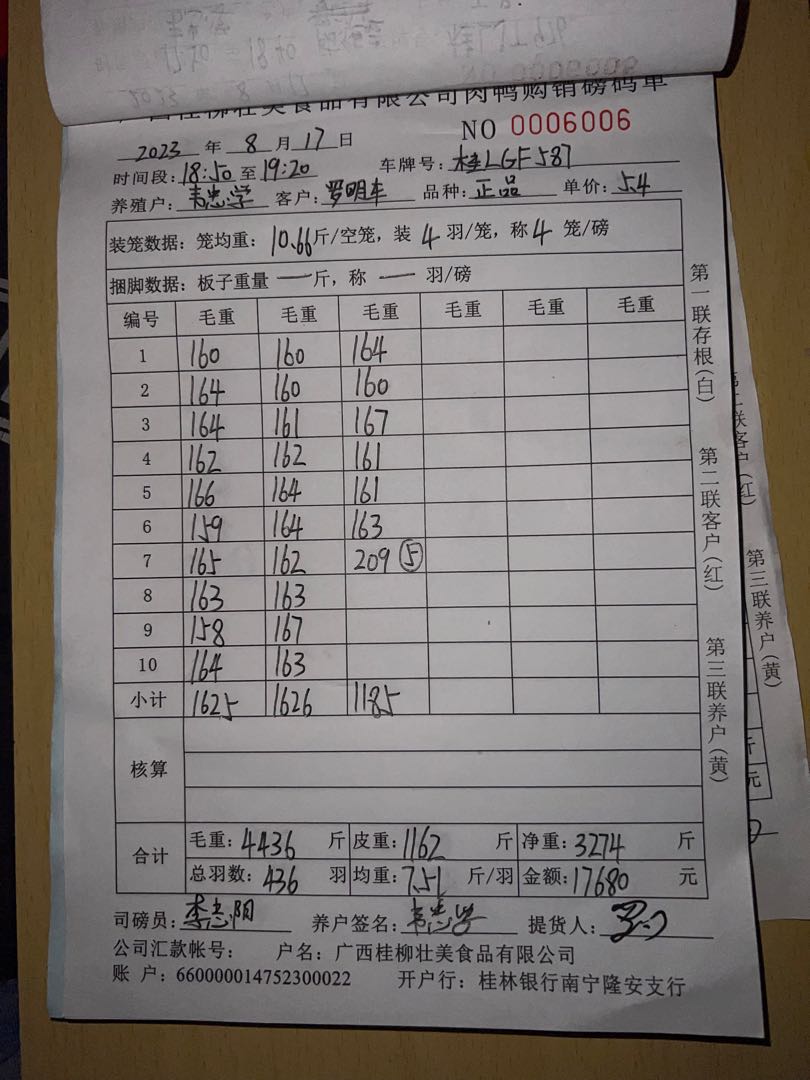 广西桂柳壮美食品有限公司肉鸭购销磅码单
NO 0006006
2023 年 8 月 17 日
时间段: 18:50 至 19:20 车牌号: 桂LGF587
养殖户: 韦忠学 客户: 罗明丰 品种: 正品 单价: 5.4
装笼数据: 笼均重: 10.66 斤/空笼, 装 4 羽/笼, 称 4 笼/磅
捆脚数据: 板子重量 — 斤, 称 — 羽/磅
编号 毛重 毛重 毛重 毛重 毛重 毛重
1 160 160 164
2 164 160 160
3 164 161 167
4 162 162 161
5 166 164 161
6 159 164 163
7 165 162 209 ⑤
8 163 163
9 158 167
10 164 163
小计 1625 1626 1185
核算
合计 毛重: 4436 斤 皮重: 1162 斤 净重: 3274 斤
总羽数: 436 羽 均重: 7.51 斤/羽 金额: 17680 元
司磅员: 李志阳 养户签名: 韦忠学 提货人:
公司汇款帐号: 户名: 广西桂柳壮美食品有限公司
账 户: 660000014752300022 开户行: 桂林银行南宁隆安支行
第一联存根(白)
第二联客户(红)
第三联养户(黄)
第三联养户(黄)